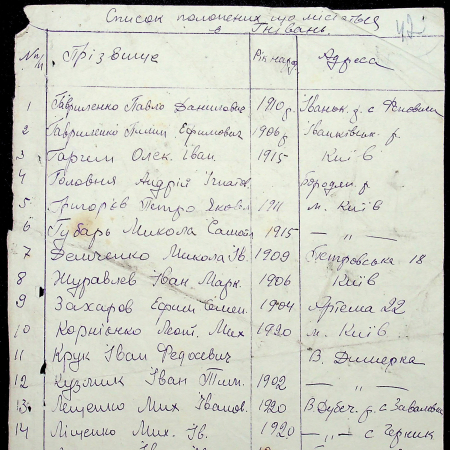 Список полонених що містяться
в Гнівань
42
№ п/п Прізвище Рік народ. Адреса
1 Гавриленко Павло Данилович 1910 р. Іваньк. р. с
2 Гавриленко Пилип Ефимович 1906 р. Іванківськ. р.
3 Гаргин Олек. Іван. 1915 Київ
4 Головня Андрій Ігнатов. Бородян. р
5 Григорів Петро Яковл 1911 м. Київ
6 Губарь Микола Самойл 1915 — „ —
7 Демченко Микола Ів. 1909 Петровська 18
8 Журавлев Іван Марк. 1906 Київ
9 Захаров Ефим Семен. 1904 Артема 22
10 Корнієнко Леонт. Мих 1920 м. Київ
11 Крук Іван Федосевич В. Димерка
12 Кузмик Іван Тим. 1902 — „ —
13 Лещенко Мих Іванов. 1920 В. Дубеч. р. с
14 Ліщенко Мих. Ів. 1920 — „ — с